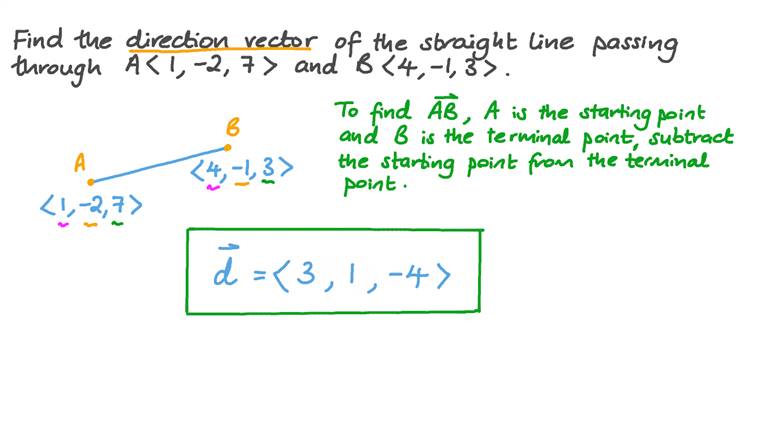 Find the direction vector of the straight line passing
through A<1, -2, 7> and B<4, -1, 3>.
To find AB, A is the starting point
and B is the terminal point, subtract
the starting point from the terminal
point.
B
<4, -1, 3>
A
<1, -2, 7>
d = <3, 1, -4>